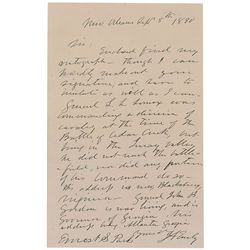 New Orleans Sept 8th 1880
Sir:
Enclosed find my
autograph — though I can
hardly make out your
signature, and have to
imitate as well as I can.
General L. L. Lomax was
commanding a division of
cavalry at the time of
the Battle of Cedar Creek, but
being in the Luray Valley
he did not reach the battle-
field, nor did any portion
of his command do so.
His address is now Blacksburg
Virginia — General John B.
Gordon is now living, and is
Governor of Georgia. His
address is Atlanta Georgia
Yours
Ernest S. J A Early